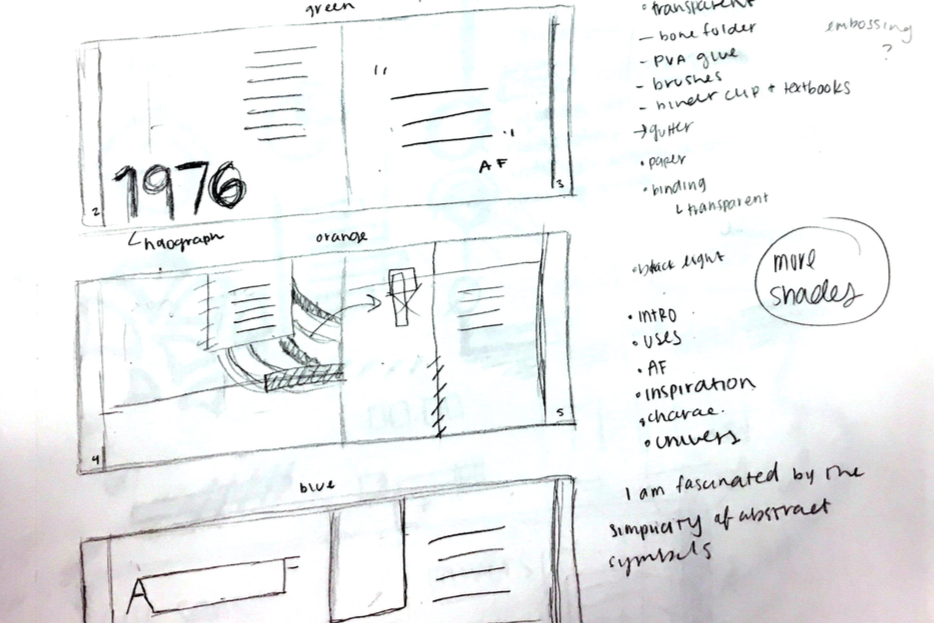 green
1976
"
"
AF
2
3
holograph
orange
4
5
blue
A
• transparent
– bone folder
- PVA glue
- brushes
- binder clip + textbooks
→ gutter
• paper
• binding
↳ transparent
embossing
?
• black light
more
shades
• INTRO
• USES
• AF
• inspiration
• charac.
• univers
I am fascinated by the
simplicity of abstract
symbols